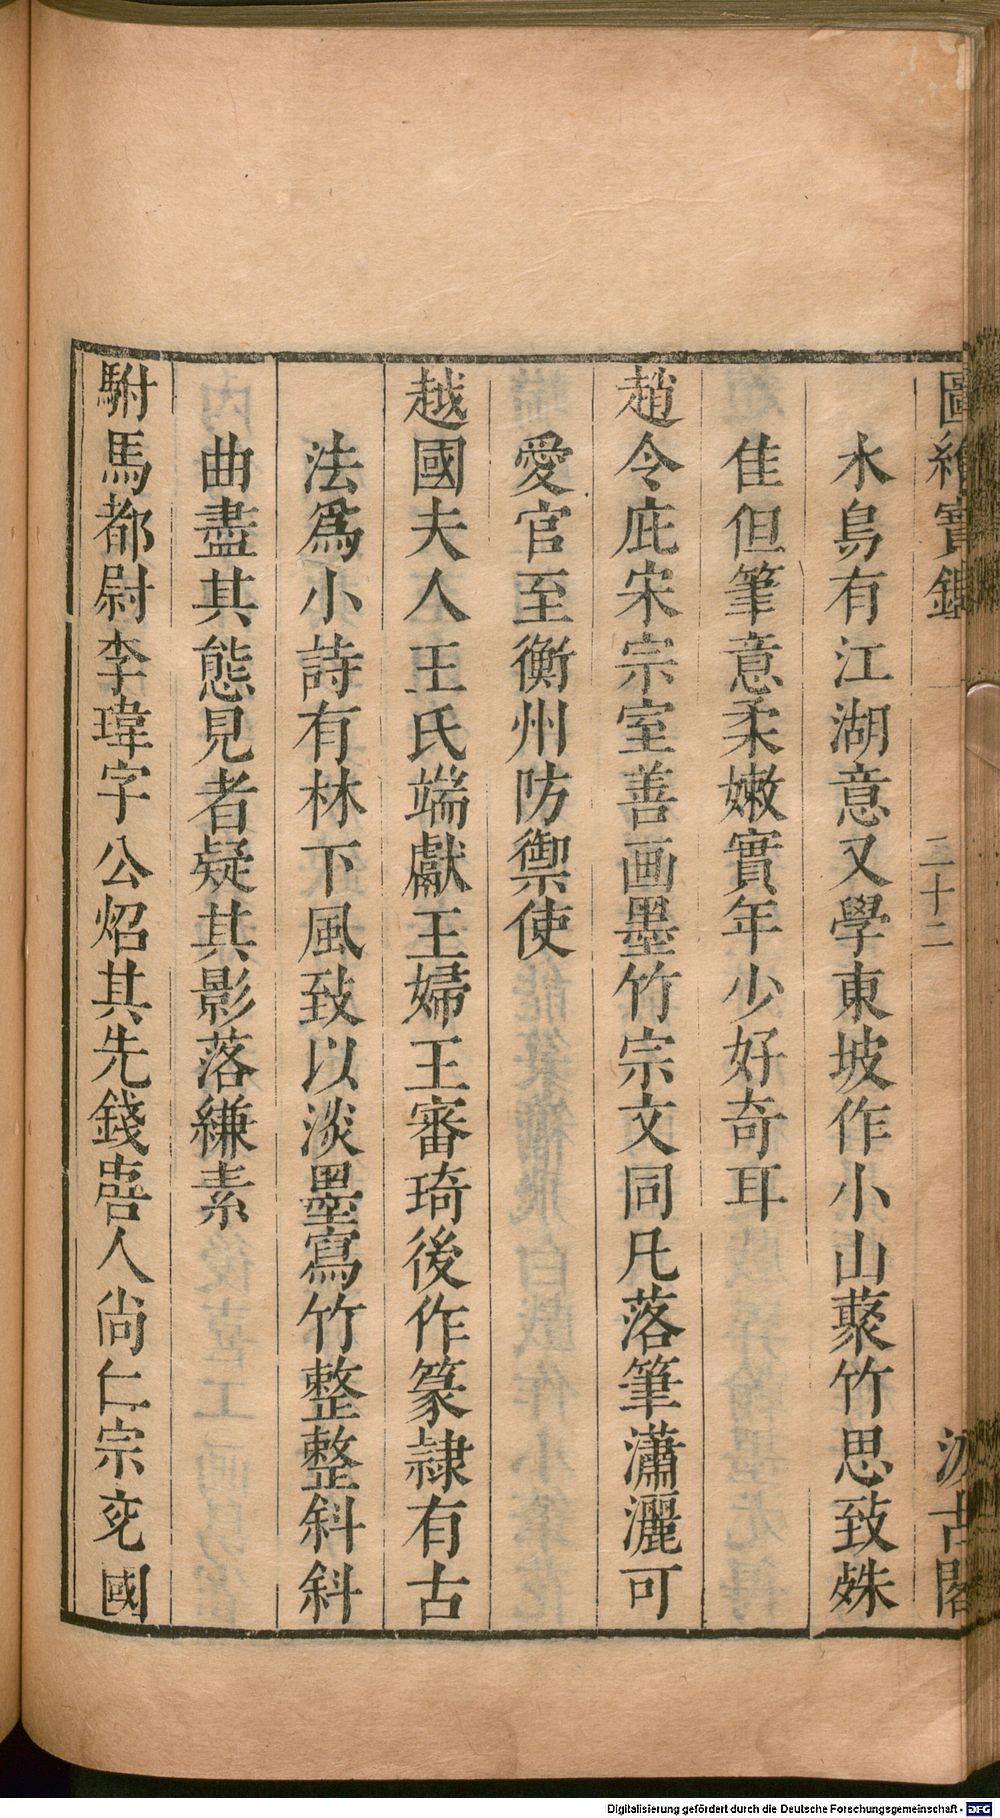 圖繪寶鑑 二十二 汲古閣
水鳥有江湖意又學東坡作小山藂竹思致姝
佳但筆意柔嫩實年少好奇耳
趙令庇宋宗室善画墨竹宗文同凡落筆瀟灑可
愛官至衡州防禦使
越國夫人王氏端獻王婦王審琦後作篆隷有古
法爲小詩有林下風致以淡墨寫竹整整斜斜
曲盡其態見者疑其影落縑素
駙馬都尉李瑋字公炤其先錢唐人尚仁宗兖國
Digitalisierung gefördert durch die Deutsche Forschungsgemeinschaft - DFG